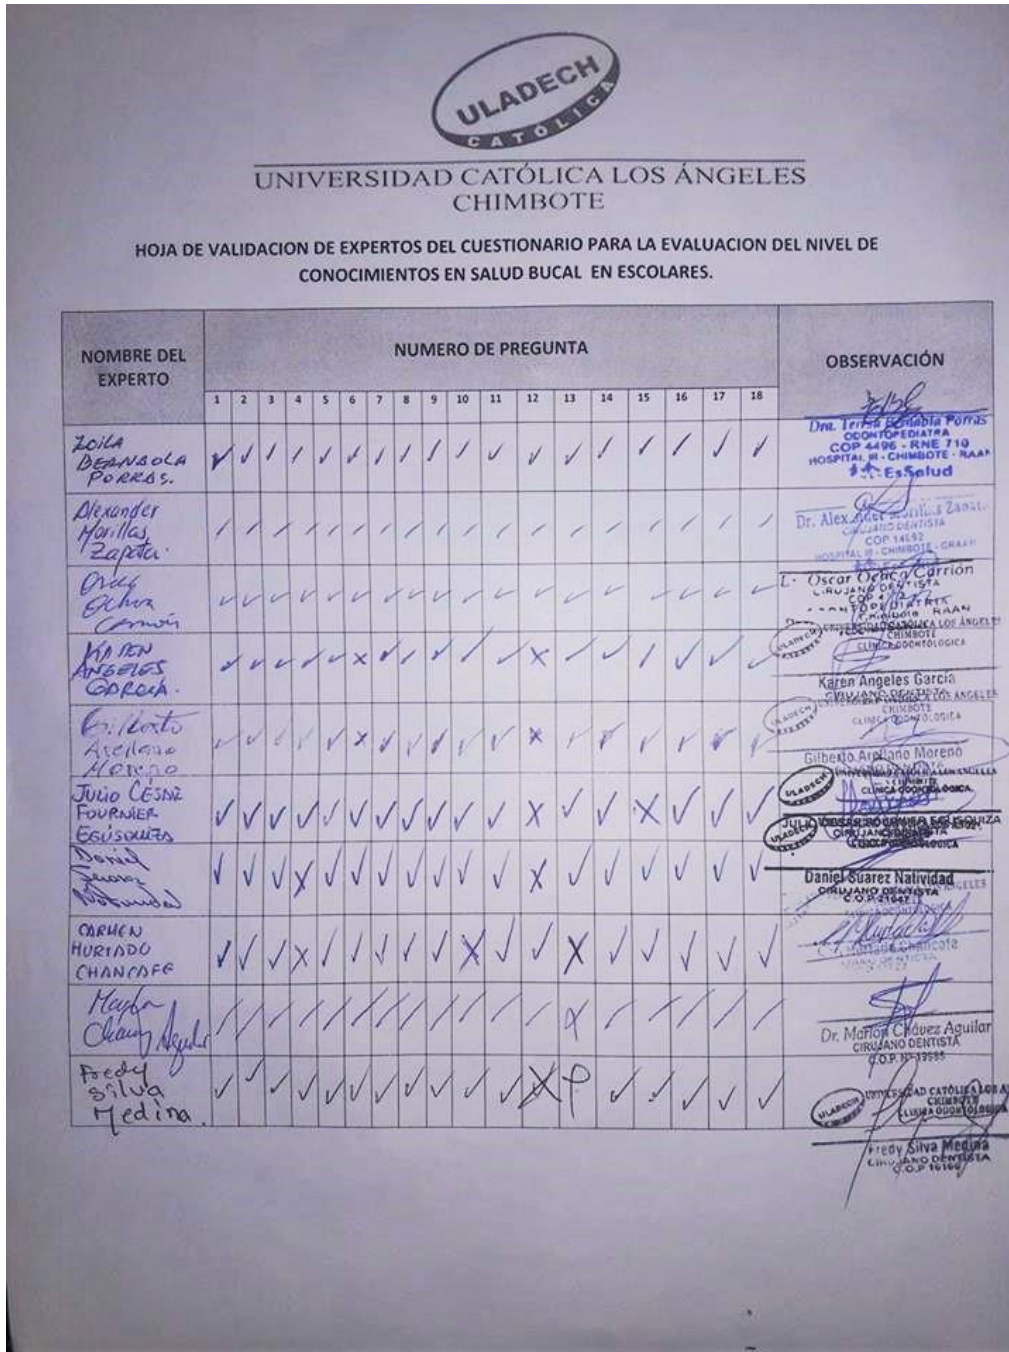 ULADECH
CATÓLICA
UNIVERSIDAD CATÓLICA LOS ÁNGELES
CHIMBOTE
HOJA DE VALIDACION DE EXPERTOS DEL CUESTIONARIO PARA LA EVALUACION DEL NIVEL DE
CONOCIMIENTOS EN SALUD BUCAL EN ESCOLARES.
NOMBRE DEL
EXPERTO
NUMERO DE PREGUNTA
OBSERVACIÓN
1 2 3 4 5 6 7 8 9 10 11 12 13 14 15 16 17 18
ZOILA
PORRAS.
Porras
ODONTOPEDIATRA
COP 4496 - RNE 710
HOSPITAL III - CHIMBOTE - RAAN
EsSalud
Alexander
Morillas
Zapata.
Dr. Alexander Morillas Zapata
CIRUJANO DENTISTA
HOSPITAL III - CHIMBOTE
Ochoa
Oscar Ochoa Carrión
CIRUJANO DENTISTA
RAAN
KAREN
ANGELES
GARCIA.
ULADECH
UNIVERSIDAD CATÓLICA LOS ÁNGELES
CHIMBOTE
CLINICA ODONTOLOGICA
Karen Angeles Garcia
CIRUJANO DENTISTA
Gilberto
Arellano
Moreno
CHIMBOTE
CLINICA ODONTOLOGICA
Gilberto Arellano Moreno
JULIO CÉSAR
FOURNIER
EGÚSQUIZA
ULADECH
CLINICA ODONTOLOGICA
FOURNIER EGUSQUIZA
CIRUJANO DENTISTA
Daniel
Suarez
Natividad
ULADECH
Daniel Suarez Natividad
CIRUJANO DENTISTA
C.O.P 21647
CARMEN
HURTADO
CHANCAFE
Hurtado Chancafe
Marlon
Chavez Aguilar
Dr. Marlon Chávez Aguilar
CIRUJANO DENTISTA
Fredy
Silva
Medina.
ULADECH
UNIVERSIDAD CATÓLICA LOS
CHIMBOTE
CLINICA ODONTOLOGICA
Fredy Silva Medina
CIRUJANO DENTISTA
C.O.P 16166